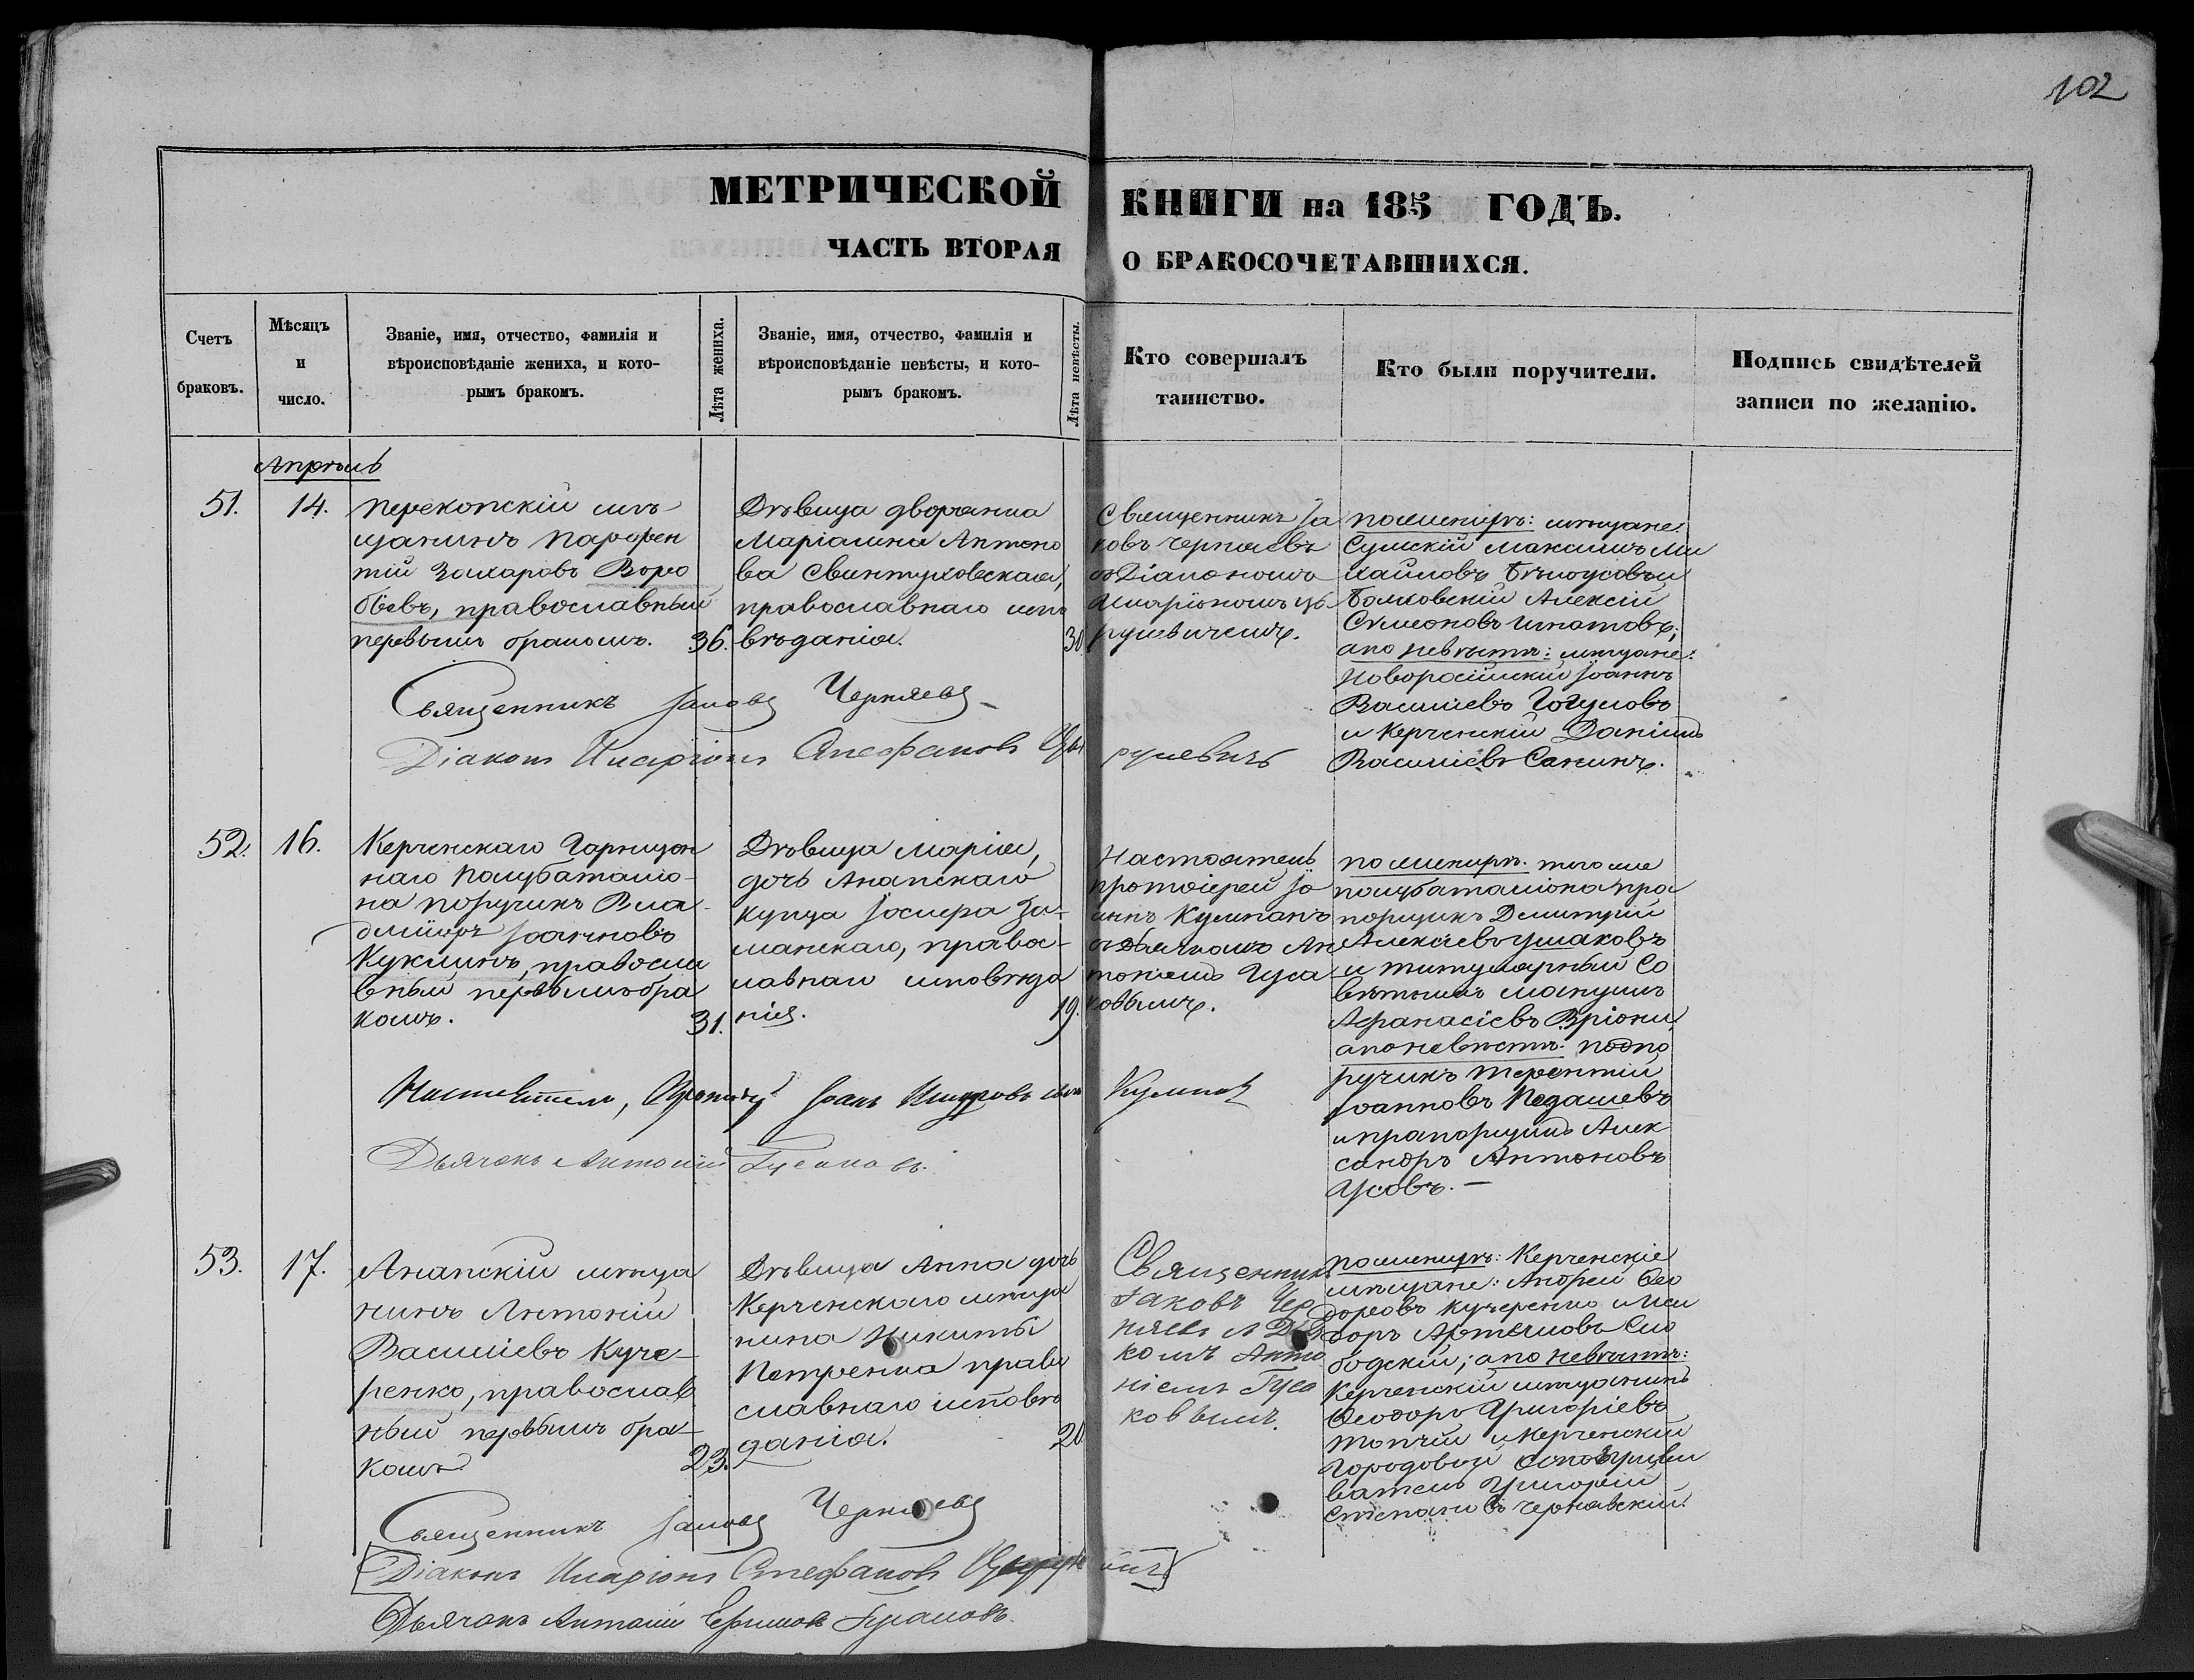 102
МЕТРИЧЕСКОЙ КНИГИ на 185 ГОДЪ.
ЧАСТЬ ВТОРАЯ О БРАКОСОЧЕТАВШИХСЯ.
Счетъ
браковъ.
Мѣсяцъ
и
число.
Званіе, имя, отчество, фамилія и
вѣроисповѣданіе жениха, и кото-
рымъ бракомъ.
Лѣта жениха.
Званіе, имя, отчество, фамилія и
вѣроисповѣданіе невѣсты, и кото-
рымъ бракомъ.
Лѣта невѣсты.
Кто совершалъ
таинство.
Кто были поручители.
Подпись свидѣтелей
записи по желанію.
Апрѣль
51.
14.
Перекопскій мѣ-
щанинъ Парфен
тій Захаровъ Воро
бьевъ, православный
первымъ бракомъ.
36.
Дѣвица дворянка
Маріанна Антоно
ва Свентуховская,
православнаго испо
вѣданія.
30.
Священникъ Іа
ковъ Черняевъ
съ Діакономъ
Иларіономъ Це-
рулевичемъ.
по женихѣ: мѣщане:
Сумскій Максимъ Ми
хайловъ Бѣлоусовъ и
Волковскій Алексій
Симеоновъ Игнатовъ;
а по невѣстѣ: мѣщане:
Новоросійскій Іоаннъ
Василіевъ Гогуловъ
и Керченскій Даніилъ
Василіевъ Санинъ.
Священникъ Іаковъ Черняевъ
Діаконъ Иларіонъ Стефановъ Церулевичъ
52.
16.
Керченскаго Гарнизон
наго Полубаталіо-
на поручикъ Вла-
диміръ Іоанновъ
Куклинъ, правосла
вный первымъ бра
комъ.
31.
Дѣвица Марія,
дочь Анапскаго
купца Іосифа За-
манскаго, правос-
лавнаго исповѣда
нія.
19.
Настоятель
протоіерей Іо
аннъ Кумпанъ
съ Дьячкомъ Ан
тоніемъ Гуса
ковымъ.
по женихѣ: того же
полубаталіона пра
порщикъ Димитрій
Алексіевъ Ушаковъ
и титулярный Со
вѣтникъ Мануилъ
Афанасіевъ Вріони,
а по невѣстѣ: подпо
ручикъ Терентій
Іоанновъ Педашевъ
и прапорщикъ Алек
сандръ Антоновъ
Усовъ. —
Настоятель, Протоіерей Іоаннъ Кумпанъ
Дьячокъ Антоній Гусаковъ.
53.
17.
Анапскій мѣща
нинъ Антоній
Василіевъ Куче-
ренко, православ
ный первымъ бра-
комъ.
23.
Дѣвица Анна дочь
Керченскаго мѣща
нина Никиты
Петренка право
славнаго исповѣ
данія.
20
Священникъ
Іаковъ Чер
няевъ съ Дьяч
комъ Анто
ніемъ Гуса
ковымъ.
по женихѣ: Керченскіе
мѣщане: Андрей Ѳео
доровъ Кучеренко и Иси
доръ Артемовъ Сло
бодскій; а по невѣстѣ:
Керченскій мѣщанинъ
Ѳеодоръ Григоріевъ
Топчій и Керченскій
Городовой Оспопривы
ватель Григорій
Степановъ Чернявскій.
Священникъ Іаковъ Черняевъ
Діаконъ Иларіонъ Стефановъ Церулевичъ
Дьячокъ Антоній Ефимовъ Гусаковъ.